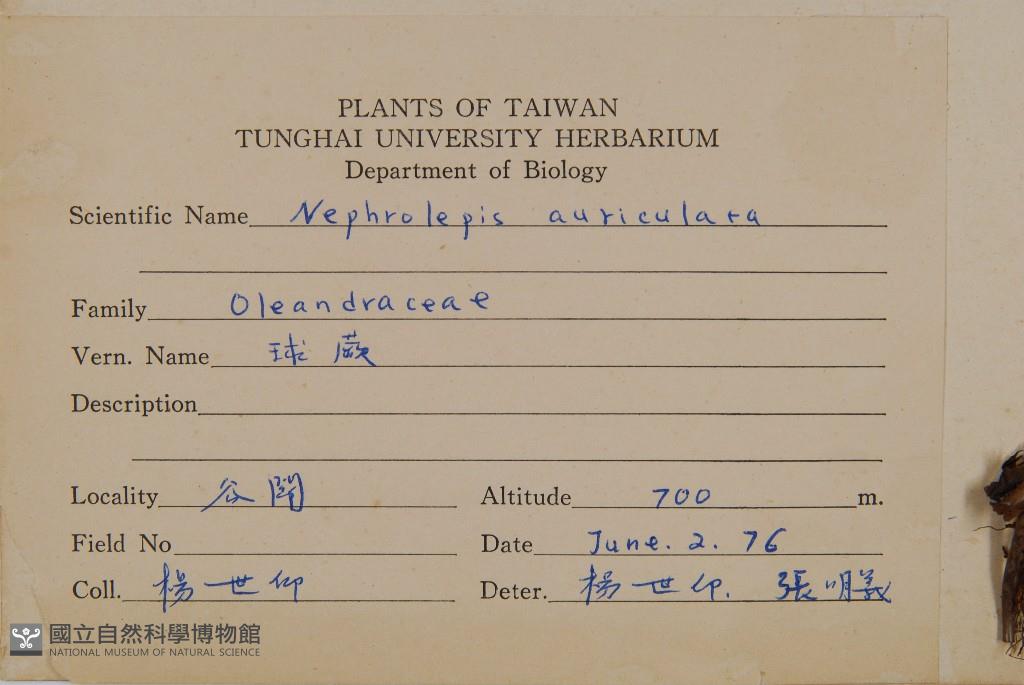 PLANTS OF TAIWAN
TUNGHAI UNIVERSITY HERBARIUM
Department of Biology
Scientific Name Nephrolepis auriculara
Family Oleandraceae
Vern. Name 球蕨
Description
Locality 谷関 Altitude 700 m.
Field No Date June. 2. 76
Coll. 楊世仰 Deter. 楊世仰. 張明義
國立自然科學博物館
NATIONAL MUSEUM OF NATURAL SCIENCE